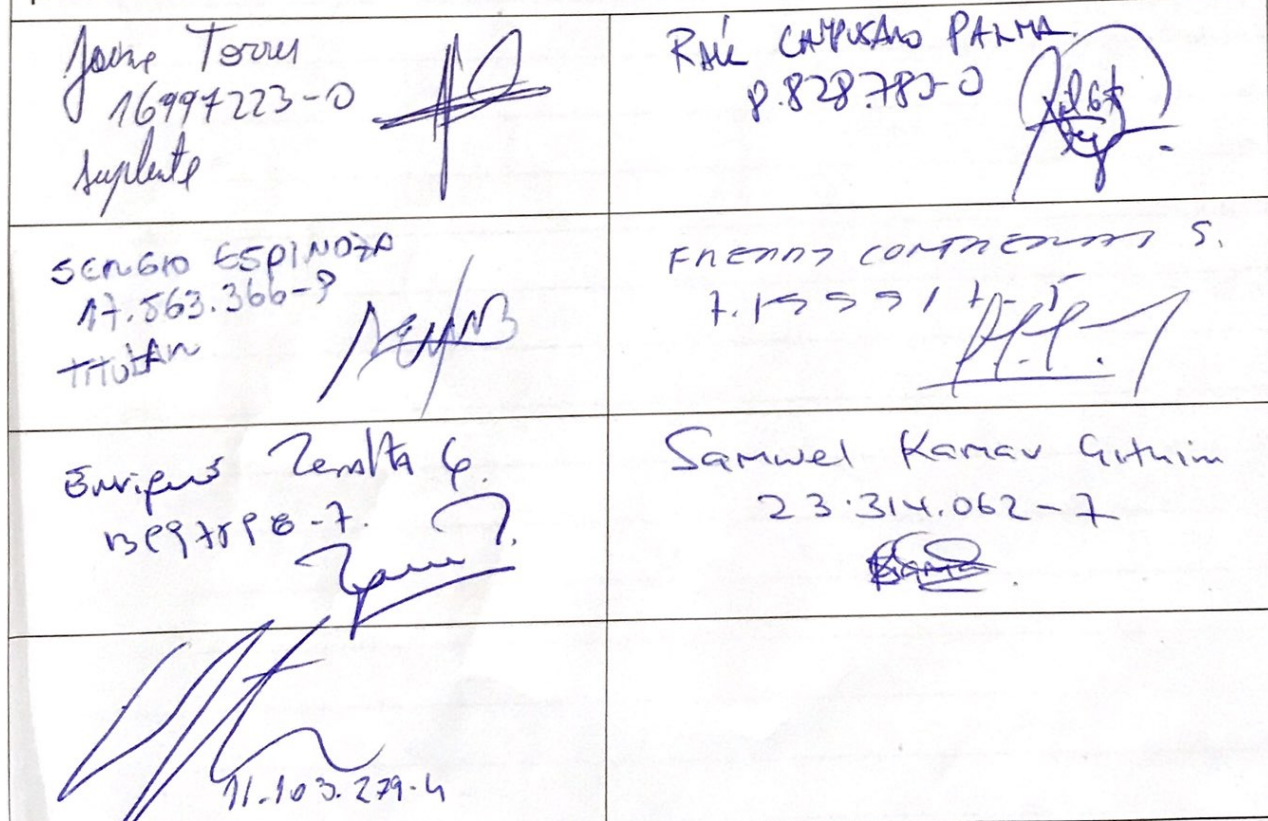 Jaime Torres
16997223-0
suplente
RAÚL CAMPUSANO PALMA
8.828.782-0
SERGIO ESPINOZA
17.563.366-9
TITULAR
FREDDY CONTRERAS S.
Enrique Zeralta G.
Samwel Kamav Githim
23.314.062-7
11.103.279-4